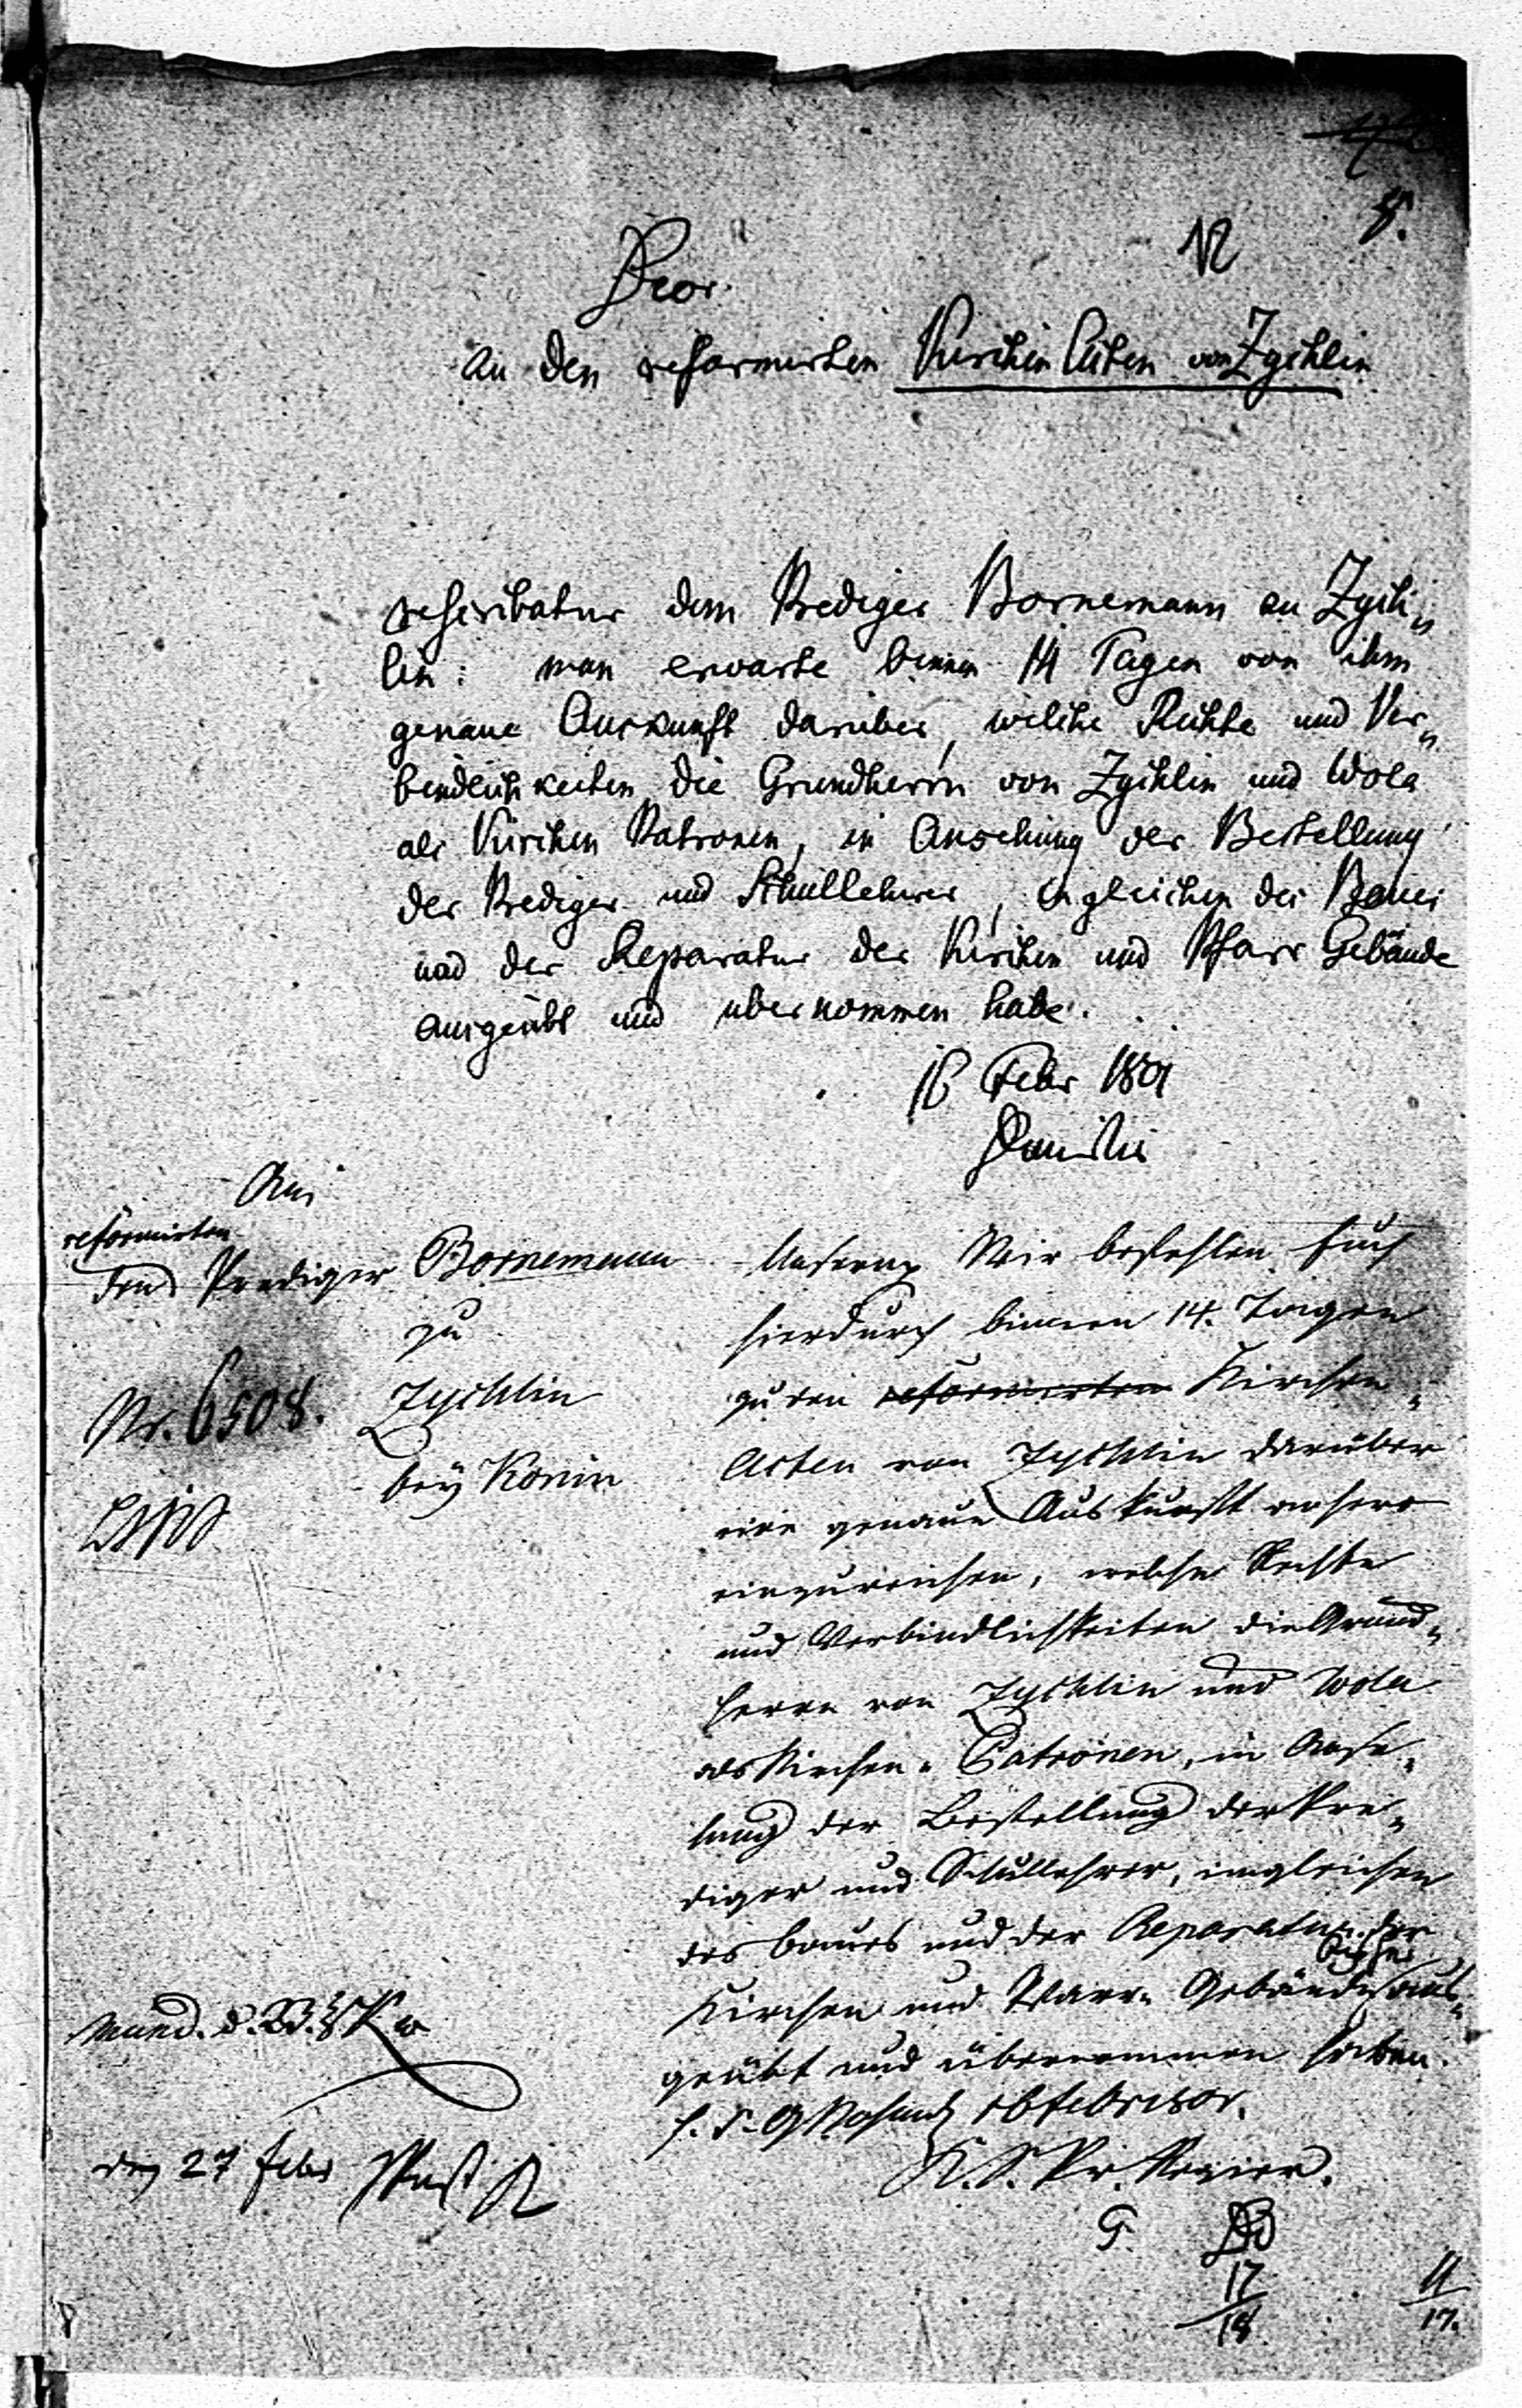 12
Decr.
an den reformirten Kirchen Akten von Zychlin
rescribatur dem Prediger Bornemann zu Zych„
lin: man erwarte binnen 14 Tagen von ihm
genaue Auskunft darüber, welche Rechte und Ver„
bindlichkeiten die Grundherrn von Zychlin und Wola
als Kirchen Patronen, in Ansehung der Bestellung
der Prediger und Schullehrer, ingleichen des Baues
und der Reparatur der Kirchen und Pfarr Gebäude
ausgeübt und übernommen habe.
16 Febr 1801
An
reformirten
den Prediger Bornemann
zu
Zychlin
bey Konin
Nr. 6508.
Unsern p Wir befehlen Euch
hierdurch binnen 14. Tagen
zu den reformirten Kirchen„
Acten von Zychlin darüber
eine genaue Auskunft anhero
einzureichen, welche Rechte
und Verbindlichkeiten die Grund„
herrn von Zychlin und Wola
als Kirchen„Patronen, in Anse„
hung der Bestellung der Pre„
diger und Schullehrer, imgleichen
des Baues und der Reparatur der
Kirchen und Pfarr„ Gebäude bisher aus„
geübt und übernommen haben.
16 Febr 1801.
K. S. Pr. Regier.
mund. d.
den 27 Febr
G.
17
18
11
17.